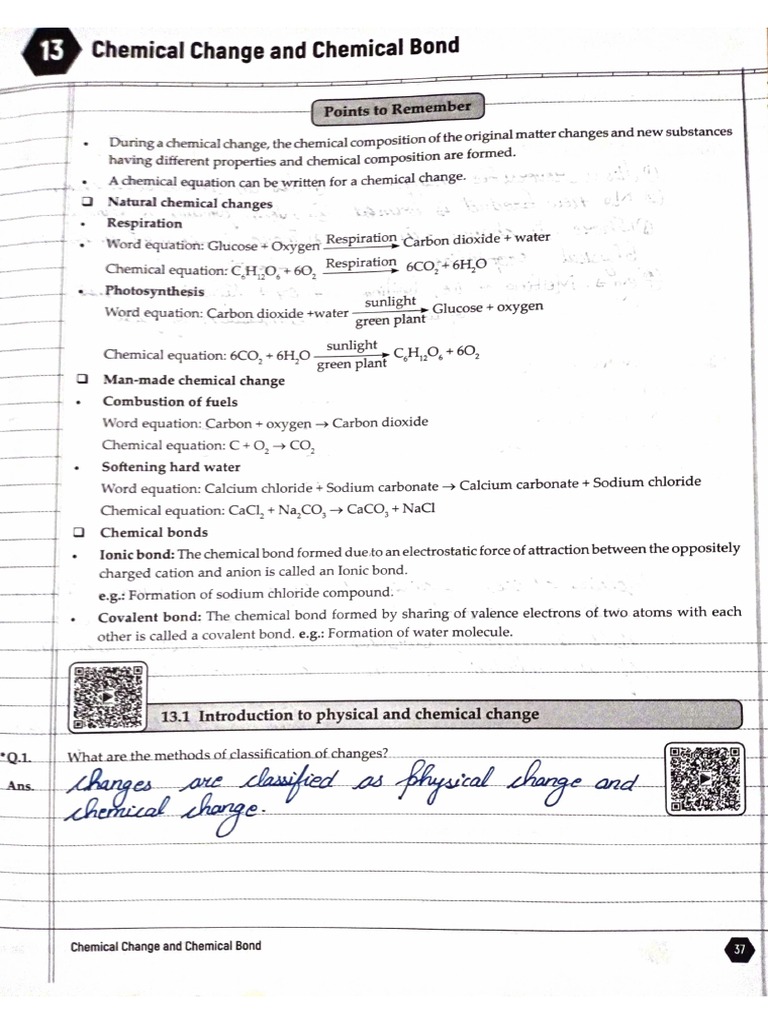 13 Chemical Change and Chemical Bond
Points to Remember
• During a chemical change, the chemical composition of the original matter changes and new substances
having different properties and chemical composition are formed.
• A chemical equation can be written for a chemical change.
❑ Natural chemical changes
• Respiration
• Word equation: Glucose + Oxygen Respiration→ Carbon dioxide + water
Chemical equation: C₆H₁₂O₆ + 6O₂ Respiration→ 6CO₂ + 6H₂O
• Photosynthesis
sunlight
Word equation: Carbon dioxide +water → Glucose + oxygen
green plant
sunlight
Chemical equation: 6CO₂ + 6H₂O → C₆H₁₂O₆ + 6O₂
green plant
❑ Man-made chemical change
• Combustion of fuels
Word equation: Carbon + oxygen → Carbon dioxide
Chemical equation: C + O₂ → CO₂
• Softening hard water
Word equation: Calcium chloride + Sodium carbonate → Calcium carbonate + Sodium chloride
Chemical equation: CaCl₂ + Na₂CO₃ → CaCO₃ + NaCl
❑ Chemical bonds
• Ionic bond: The chemical bond formed due to an electrostatic force of attraction between the oppositely
charged cation and anion is called an Ionic bond.
e.g.: Formation of sodium chloride compound.
• Covalent bond: The chemical bond formed by sharing of valence electrons of two atoms with each
other is called a covalent bond. e.g.: Formation of water molecule.
13.1 Introduction to physical and chemical change
*Q.1. What are the methods of classification of changes?
Ans. Changes are classified as physical change and
chemical change.
Chemical Change and Chemical Bond 37